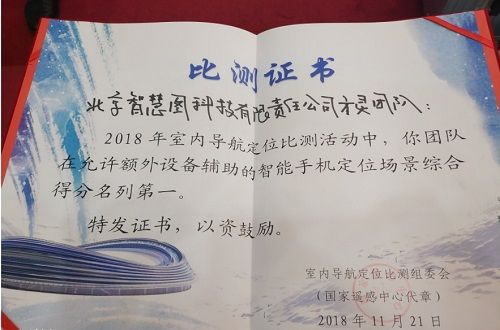 比测证书
北京智慧图科技有限责任公司才灵团队：
2018年室内导航定位比测活动中，你团队
在允许额外设备辅助的智能手机定位场景综合
得分名列第一。
特发证书，以资鼓励。
室内导航定位比测组委会
（国家遥感中心代章）
2018年11月21日